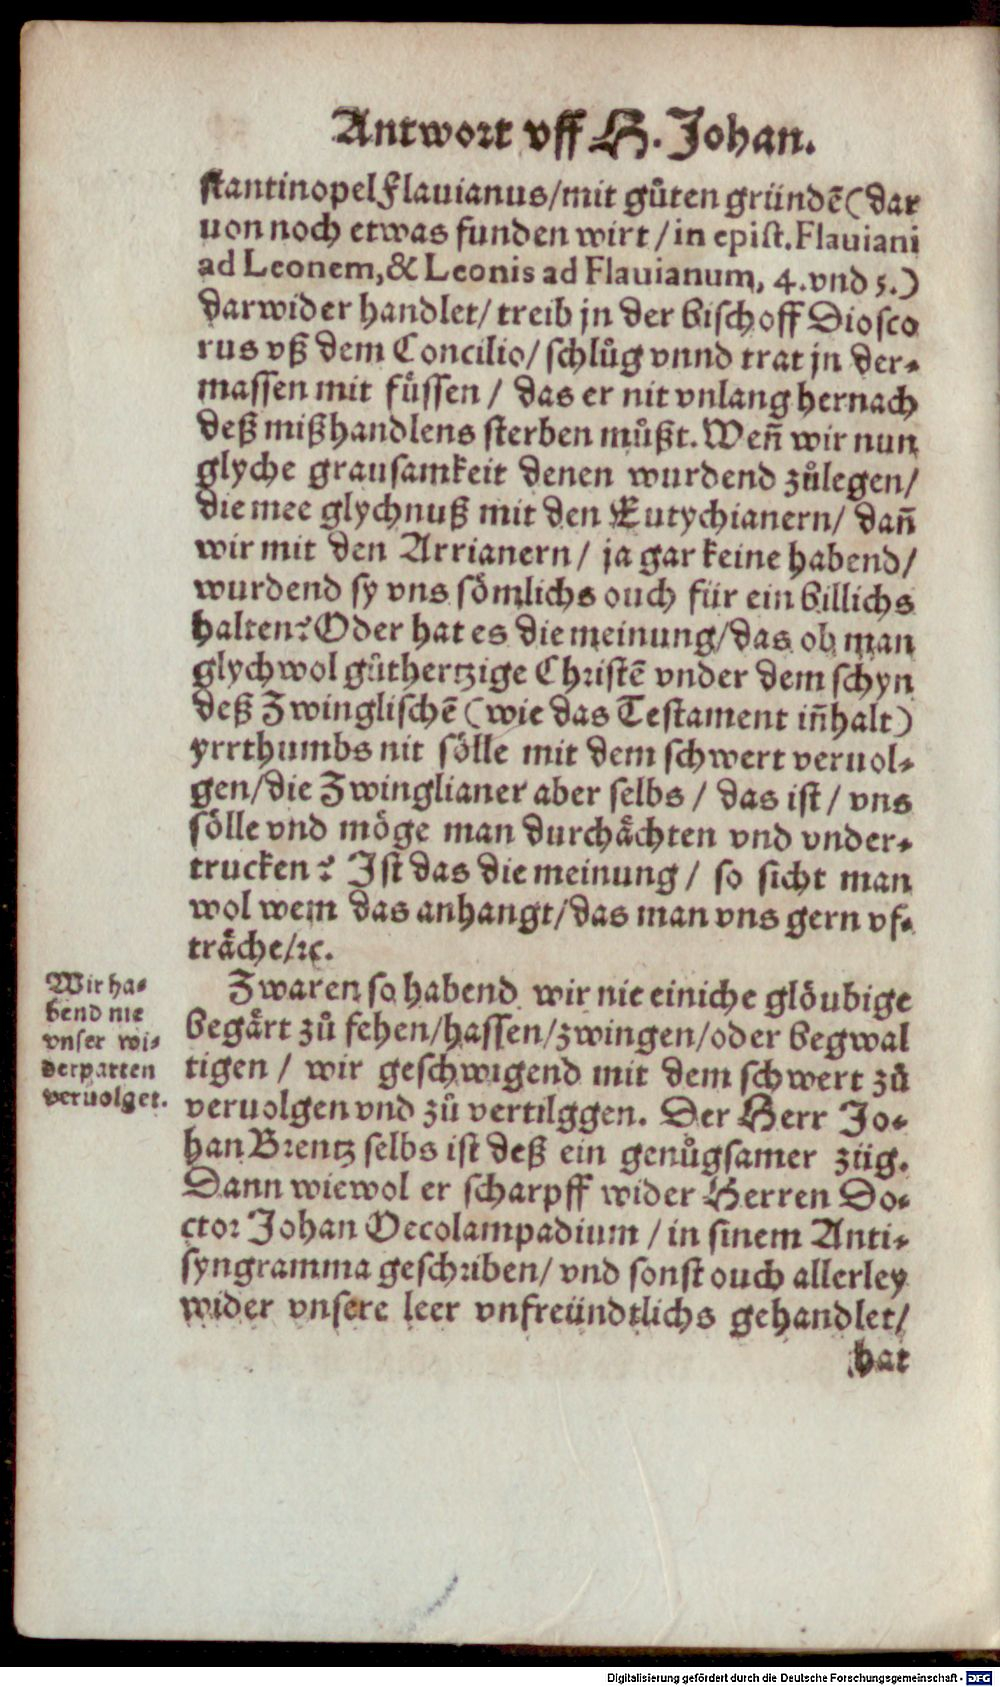 Antwort vff H. Johan.
stantinopel Flauianus/mit gůten gründẽ (dar
uon noch etwas funden wirt/in epist. Flauiani
ad Leonem, & Leonis ad Flauianum, 4. vnd 5.)
darwider handlet/ treib jn der bischoff Diosco
rus vß dem Concilio/ schlůg vnnd trat jn der-
massen mit fuͤssen/ das er nit vnlang hernach
deß mißhandlens sterben můßt. Weñ wir nun
glyche grausamkeit denen wurdend zůlegen/
die mee glychnuß mit den Eutychianern/ dañ
wir mit den Arrianern/ ja gar keine habend/
wurdend sy vns soͤmlichs ouch für ein billichs
halten? Oder hat es die meinung/das ob man
glychwol gůthertzige Christẽ vnder dem schyn
deß Zwinglischẽ (wie das Testament iñhalt)
yrrthumbs nit soͤlle mit dem schwert veruol-
gen/die Zwinglianer aber selbs/ das ist/ vns
soͤlle vnd moͤge man durchaͤchten vnd vnder-
trucken? Ist das die meinung/ so sicht man
wol wem das anhangt/das man vns gern vf-
traͤche/ꝛc.
Wir ha-
bend nie
vnser wi-
derparten
veruolget.
Zwaren so habend wir nie einiche gloͤubige
begaͤrt zů fehen/hassen/zwingen/oder begwal
tigen/ wir geschwigend mit dem schwert zů
veruolgen vnd zů vertilggen. Der Herr Jo-
han Brentz selbs ist deß ein genůgsamer züg.
Dann wiewol er scharpff wider Herren Do-
ctor Johan Oecolampadium/in sinem Anti-
syngramma geschriben/ vnd sonst ouch allerley
wider vnsere leer vnfreündtlichs gehandlet/
hat
Digitalisierung gefördert durch die Deutsche Forschungsgemeinschaft - DFG